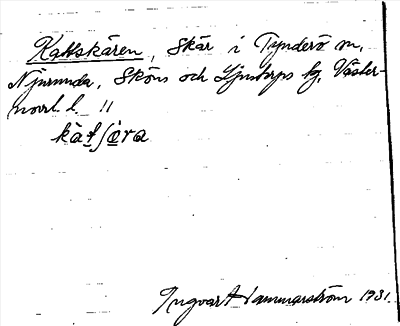 Kattskären, Skär i Tynderö m,
Njurunda, Sköns och Ljustorps sg, Väster-
norrl. l. 11
kàt̲ʃø̲̀ra
Ingvar Hammarström 1931.